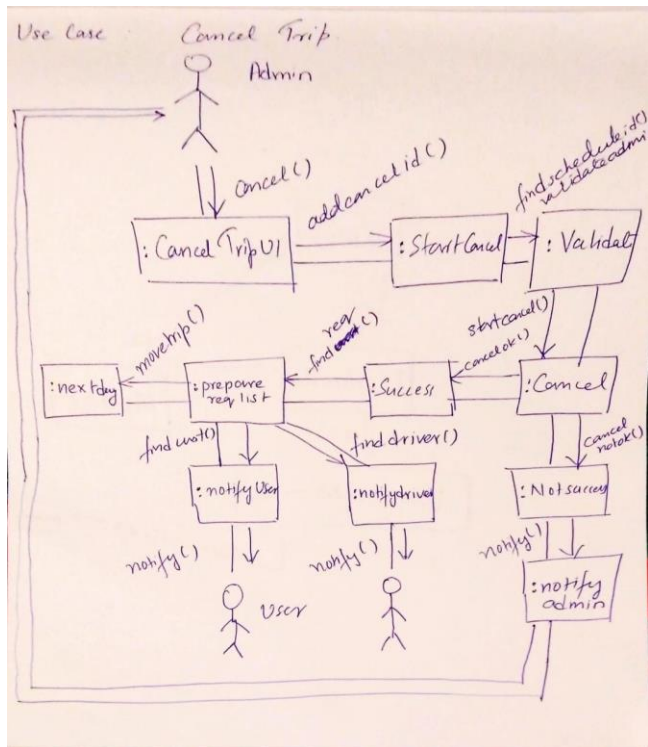 Use Case Cancel Trip
Admin
cancel()
addcancelid()
findscheduleid()
validateadmi
:CancelTripUI
:StartCancel
:Validate
startcancel()
cancelok()
movetrip()
req
find ()
:nextday
:prepare
req list
:Success
:Cancel
findcust()
finddriver()
cancel
notok()
:notifyUser
:notifydriver
:Notsuccess
notify()
notify()
notify()
:notify
admin
User